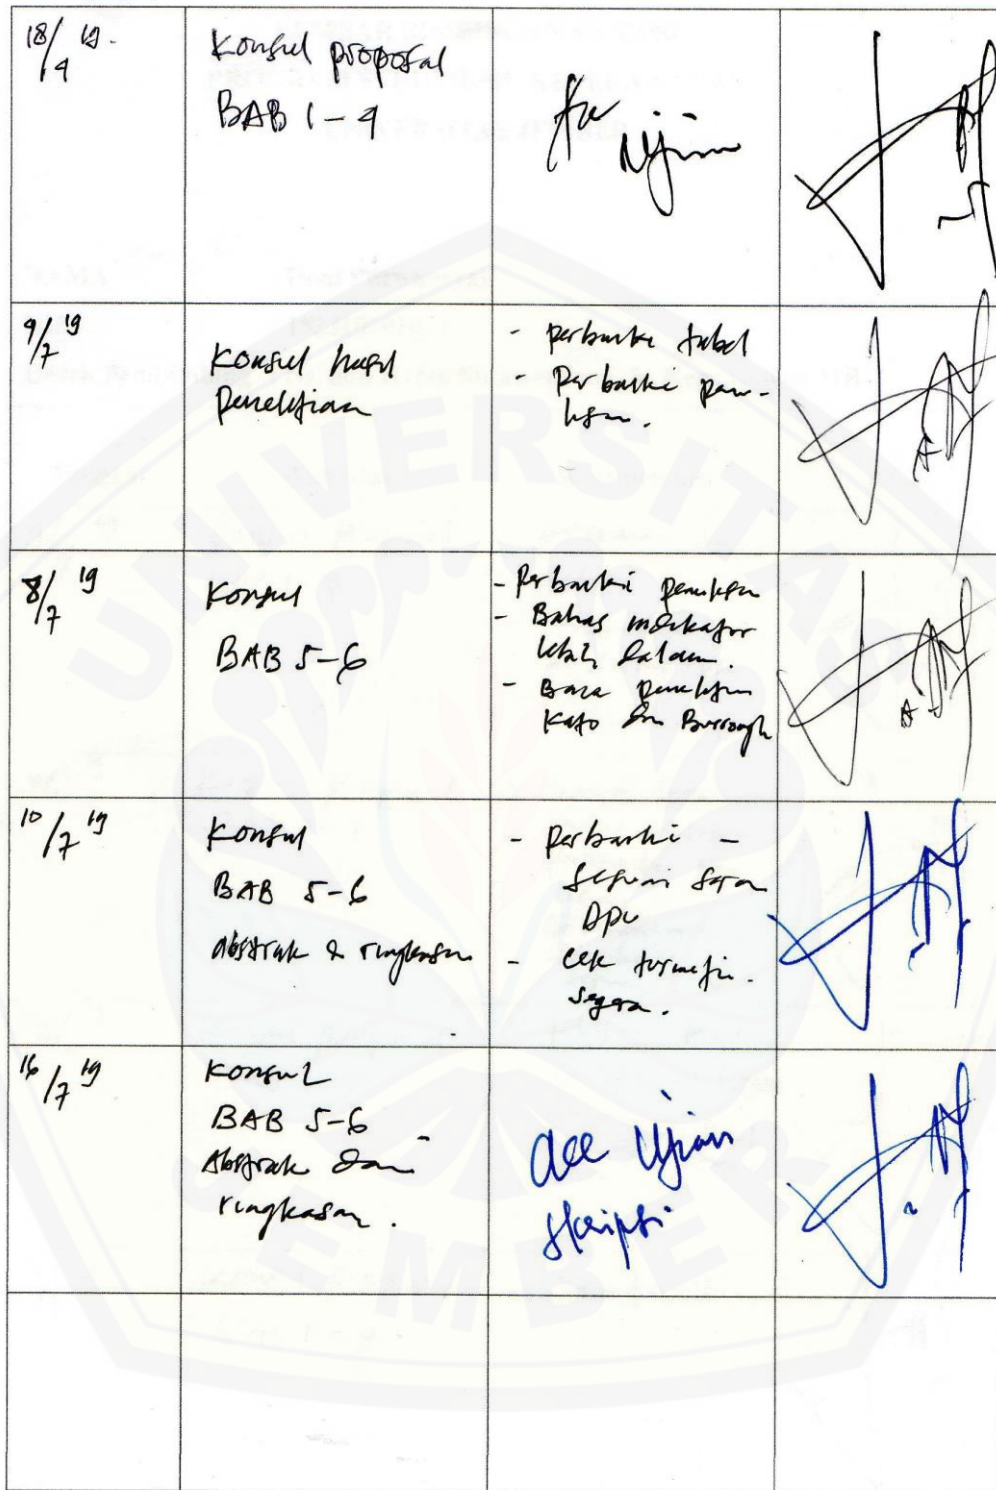 18/4 19.
Konsul proposal
BAB 1-4
Acc
Ujian
9/7 19
Konsul hasil
penelitian
- perbaiki tabel
- Perbaiki penu-
lisan.
8/7 19
Konsul
BAB 5-6
- Perbaiki penulisan
- Bahas indikator
lebih dalam.
- Baca penelitian
Kato dan Burrough
10/7 19
Konsul
BAB 5-6
abstrak & ringkasan
- perbaiki -
sesuai saran
DPU
- cek turnitin
segera.
16/7 19
Konsul
BAB 5-6
Abstrak dan
ringkasan.
acc Ujian
Skripsi
UNIVERSITAS
JEMBER